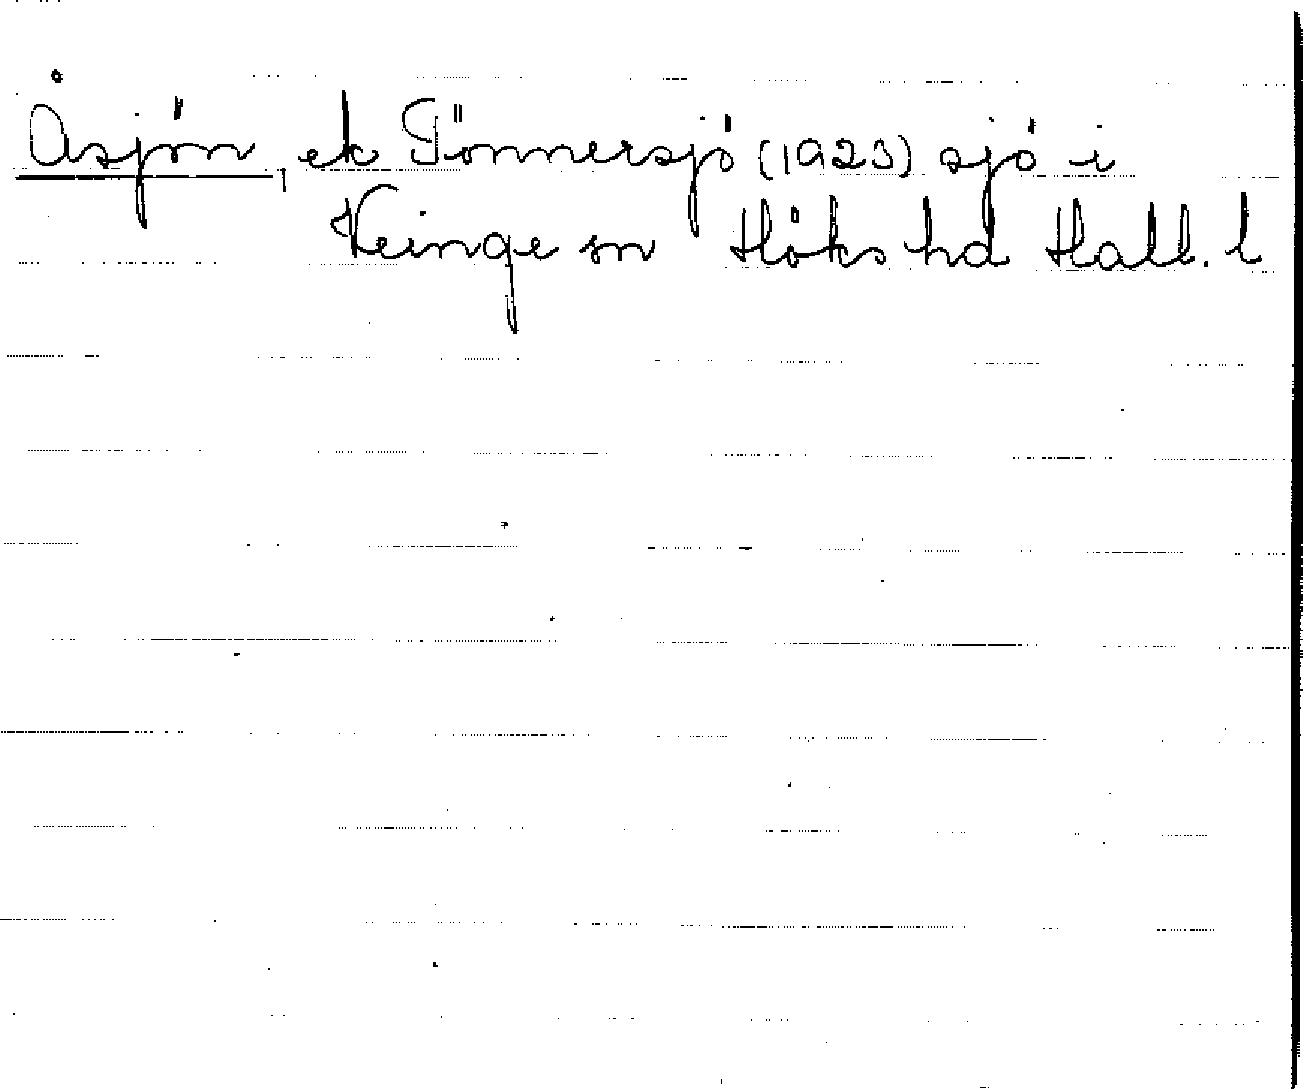 Åsjön, ek Tönnersjö (1923) sjö i
Veinge sn Höks hd Hall. l